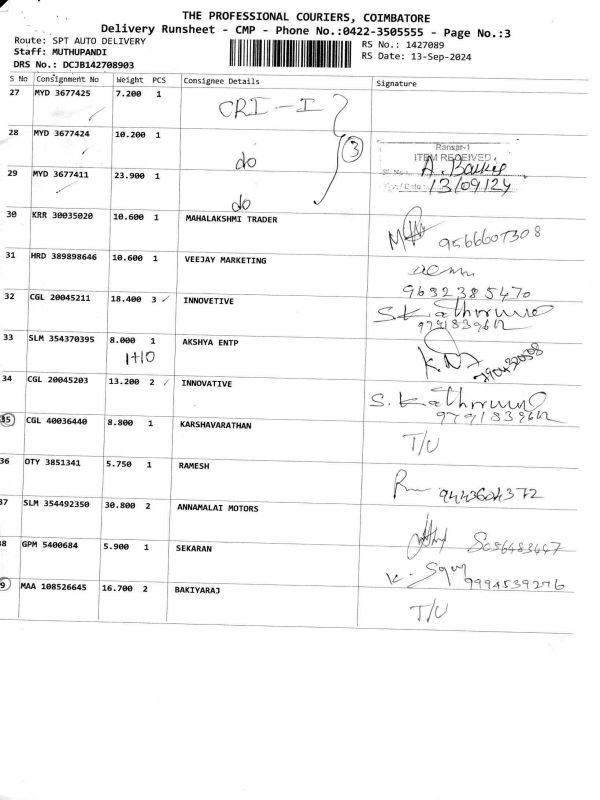 THE PROFESSIONAL COURIERS, COIMBATORE
Delivery Runsheet - CMP - Phone No.:0422-3505555 - Page No.:3
Route: SPT AUTO DELIVERY
Staff: MUTHUPANDI
DRS No.: DCJB142708903
RS No.: 1427089
RS Date: 13-Sep-2024
S No Consignment No Weight PCS Consignee Details Signature
27 MYD 3677425 7.200 1 CRI-I
28 MYD 3677424 10.200 1 do 3
ITEM RECEIVED
29 MYD 3677411 23.900 1 do 13/09/24
30 KRR 30035020 10.600 1 MAHALAKSHMI TRADER 9566607308
31 HRD 389898646 10.600 1 VEEJAY MARKETING 9692385470
32 CGL 20045211 18.400 3 INNOVETIVE
33 SLM 354370395 8.000 1 AKSHYA ENTP
1+10
34 CGL 20045203 13.200 2 INNOVATIVE
35 CGL 40036440 8.800 1 KARSHAVARATHAN T/U
36 OTY 3851341 5.750 1 RAMESH 9443604372
37 SLM 354492350 30.800 2 ANNAMALAI MOTORS
38 GPM 5400684 5.900 1 SEKARAN 9994539276
9 MAA 108526645 16.700 2 BAKIYARAJ T/U